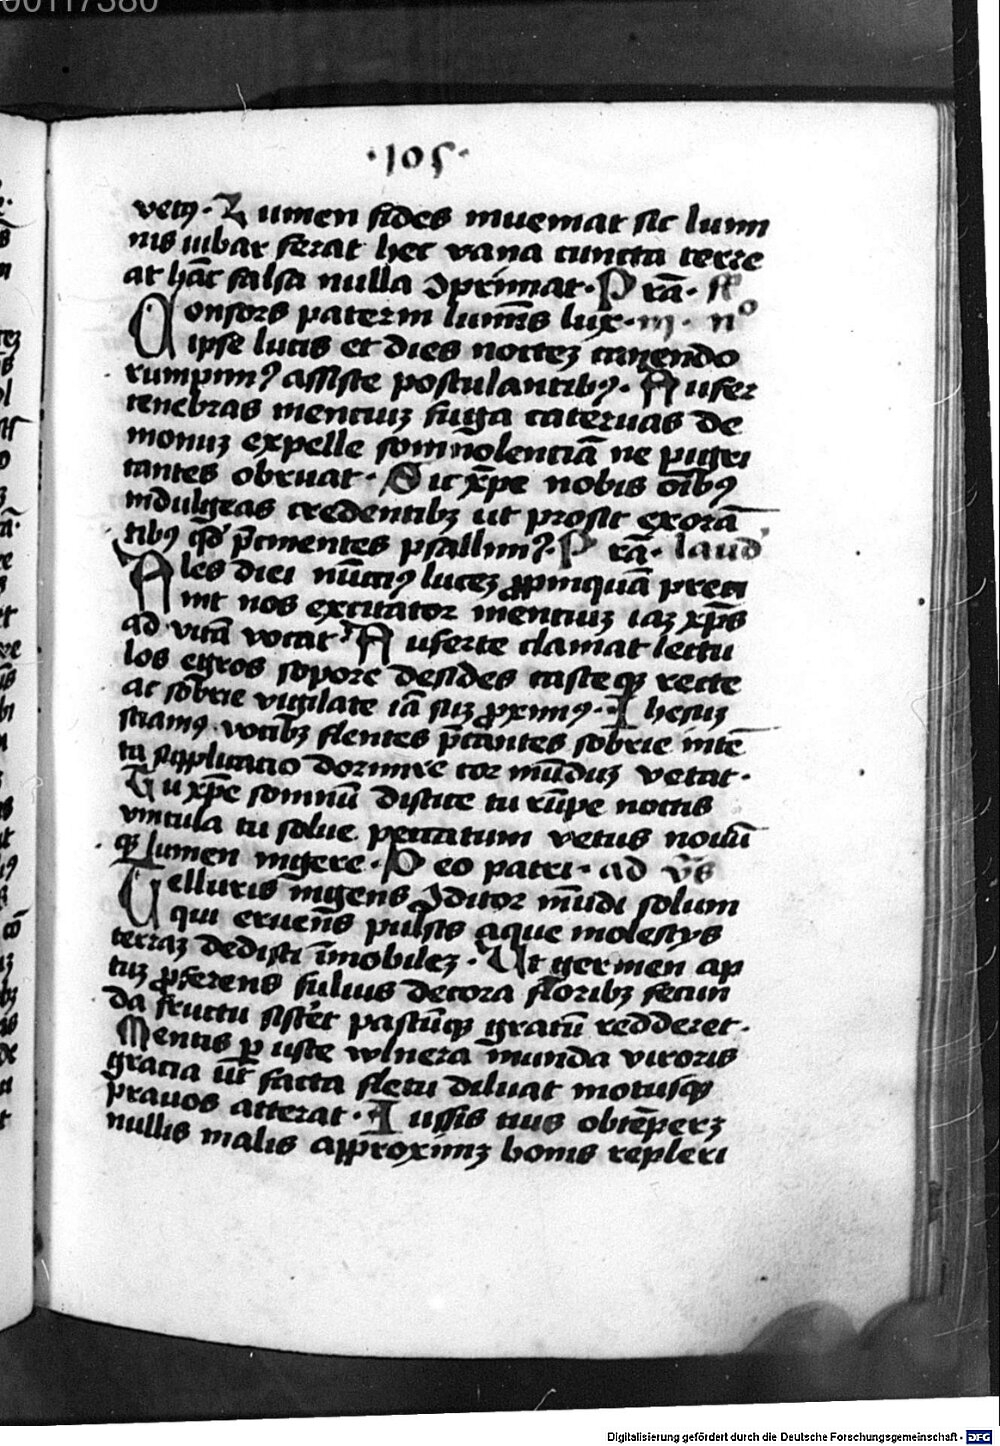 00117380
·105·
vetꝰ· Lumen fides inueniat sic lumi
nis iubar ferat hec vana cuncta terre
at hāc falsa nulla ꝯprimat· P rā· f
Consors paterni luminis lux· iij· nº
ipse lucis et dies noctez canendo
rumpimꝰ assiste postulantibꝰ· Aufer
tenebras mentiuꝫ fuga cateruas de
monuꝫ expelle somnolentiā ne pigri
tantes obruat· Sic xp̄e nobis oībꝰ
indulgeas credentibꝫ ut prosit exorā
tibꝰ qd̄ p̄cinentes psallimꝰ· P rā· laud
Ales diei nūciꝰ lucez ꝓpinquā preci
nit nos excitator mentiuꝫ iaꝫ xp̄s
ad vitā vocat· Auferte clamat lectu
los egros sopore desides casteqꝫ recte
ac sobrie vigilate iā suꝫ ꝓximꝰ· Ihesuꝫ
ciamꝰ vocibꝫ flentes p̄cantes sobrie intē
ta supplicacio dormire cor mūduꝫ vetat·
Tu xp̄e somnū discute tu rūpe noctis
vincula tu solue peccatum vetus nouū
qꝫ lumen ingere· Deo patri· ad vs̄
Telluris īngens ꝯditor mūdi solum
qui eruens pulsis aque molestys
terraꝫ dedisti īmobilez· Ut germen ap
tuꝫ ꝓferens fuluis decora floribꝫ fecun
da fructu sisteret pastūqꝫ gratū redderet·
Mentis ꝑuste wlnera munda viroris
gracia ut facta fletu diluat motusqꝫ
prauos atterat· Iussis tuis obtēperꝫ
nullis malis approximꝫ bonis repleri
Digitalisierung gefördert durch die Deutsche Forschungsgemeinschaft - DFG